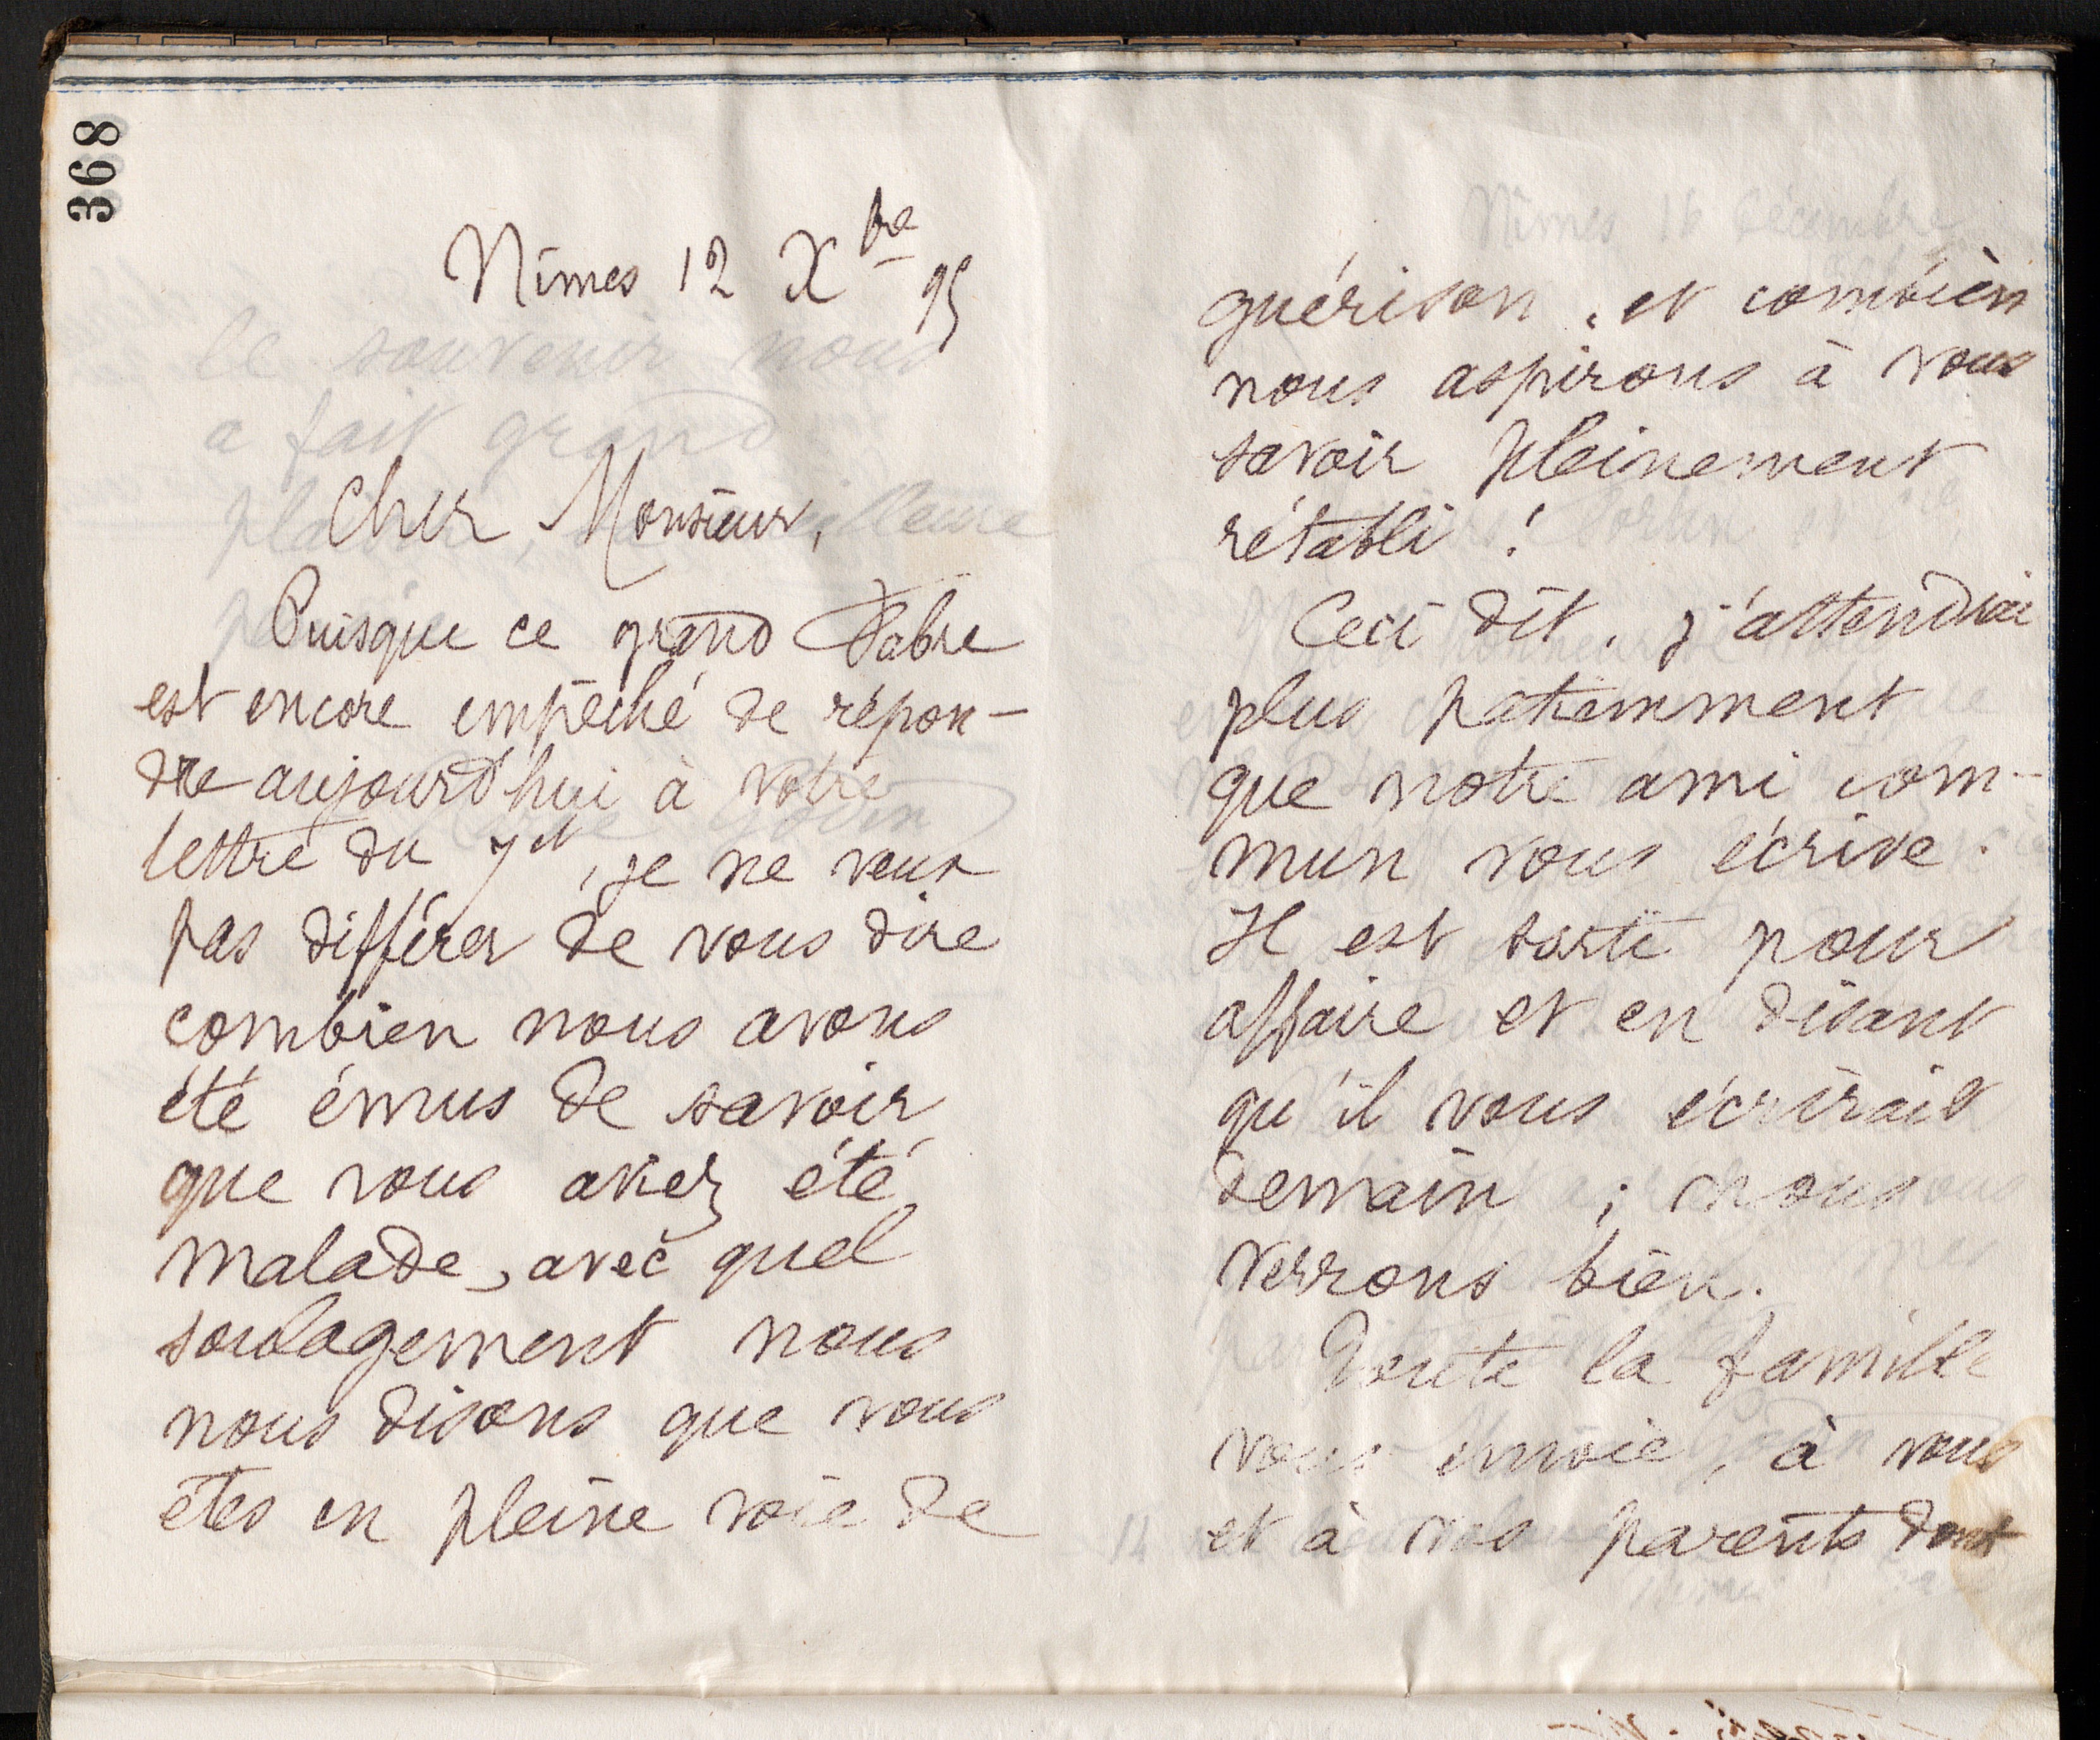 368
Nîmes 12 Xbre 95
Cher Monsieur,
Puisque ce grand Fabre
est encore empêché de répon-
dre aujourd'hui à votre
lettre du 7 ct, je ne veux
pas différer de vous dire
combien nous avons
été émus de savoir
que vous aviez été
malade, avec quel
soulagement nous
nous disons que vous
êtes en pleine voie de
guérison, et combien
nous aspirons à vous
savoir pleinement
rétabli !
Ceci dit, j'attendrai
plus patiemment
que notre ami com-
mun vous écrive.
Il est sorti pour
affaire et en disant
qu'il vous écrirait
demain ; nous
verrons bien.
Toute la famille
vous envoie, à vous
et à vos parents dont
le souvenir nous
a fait grand
Nîmes 16 Décembre